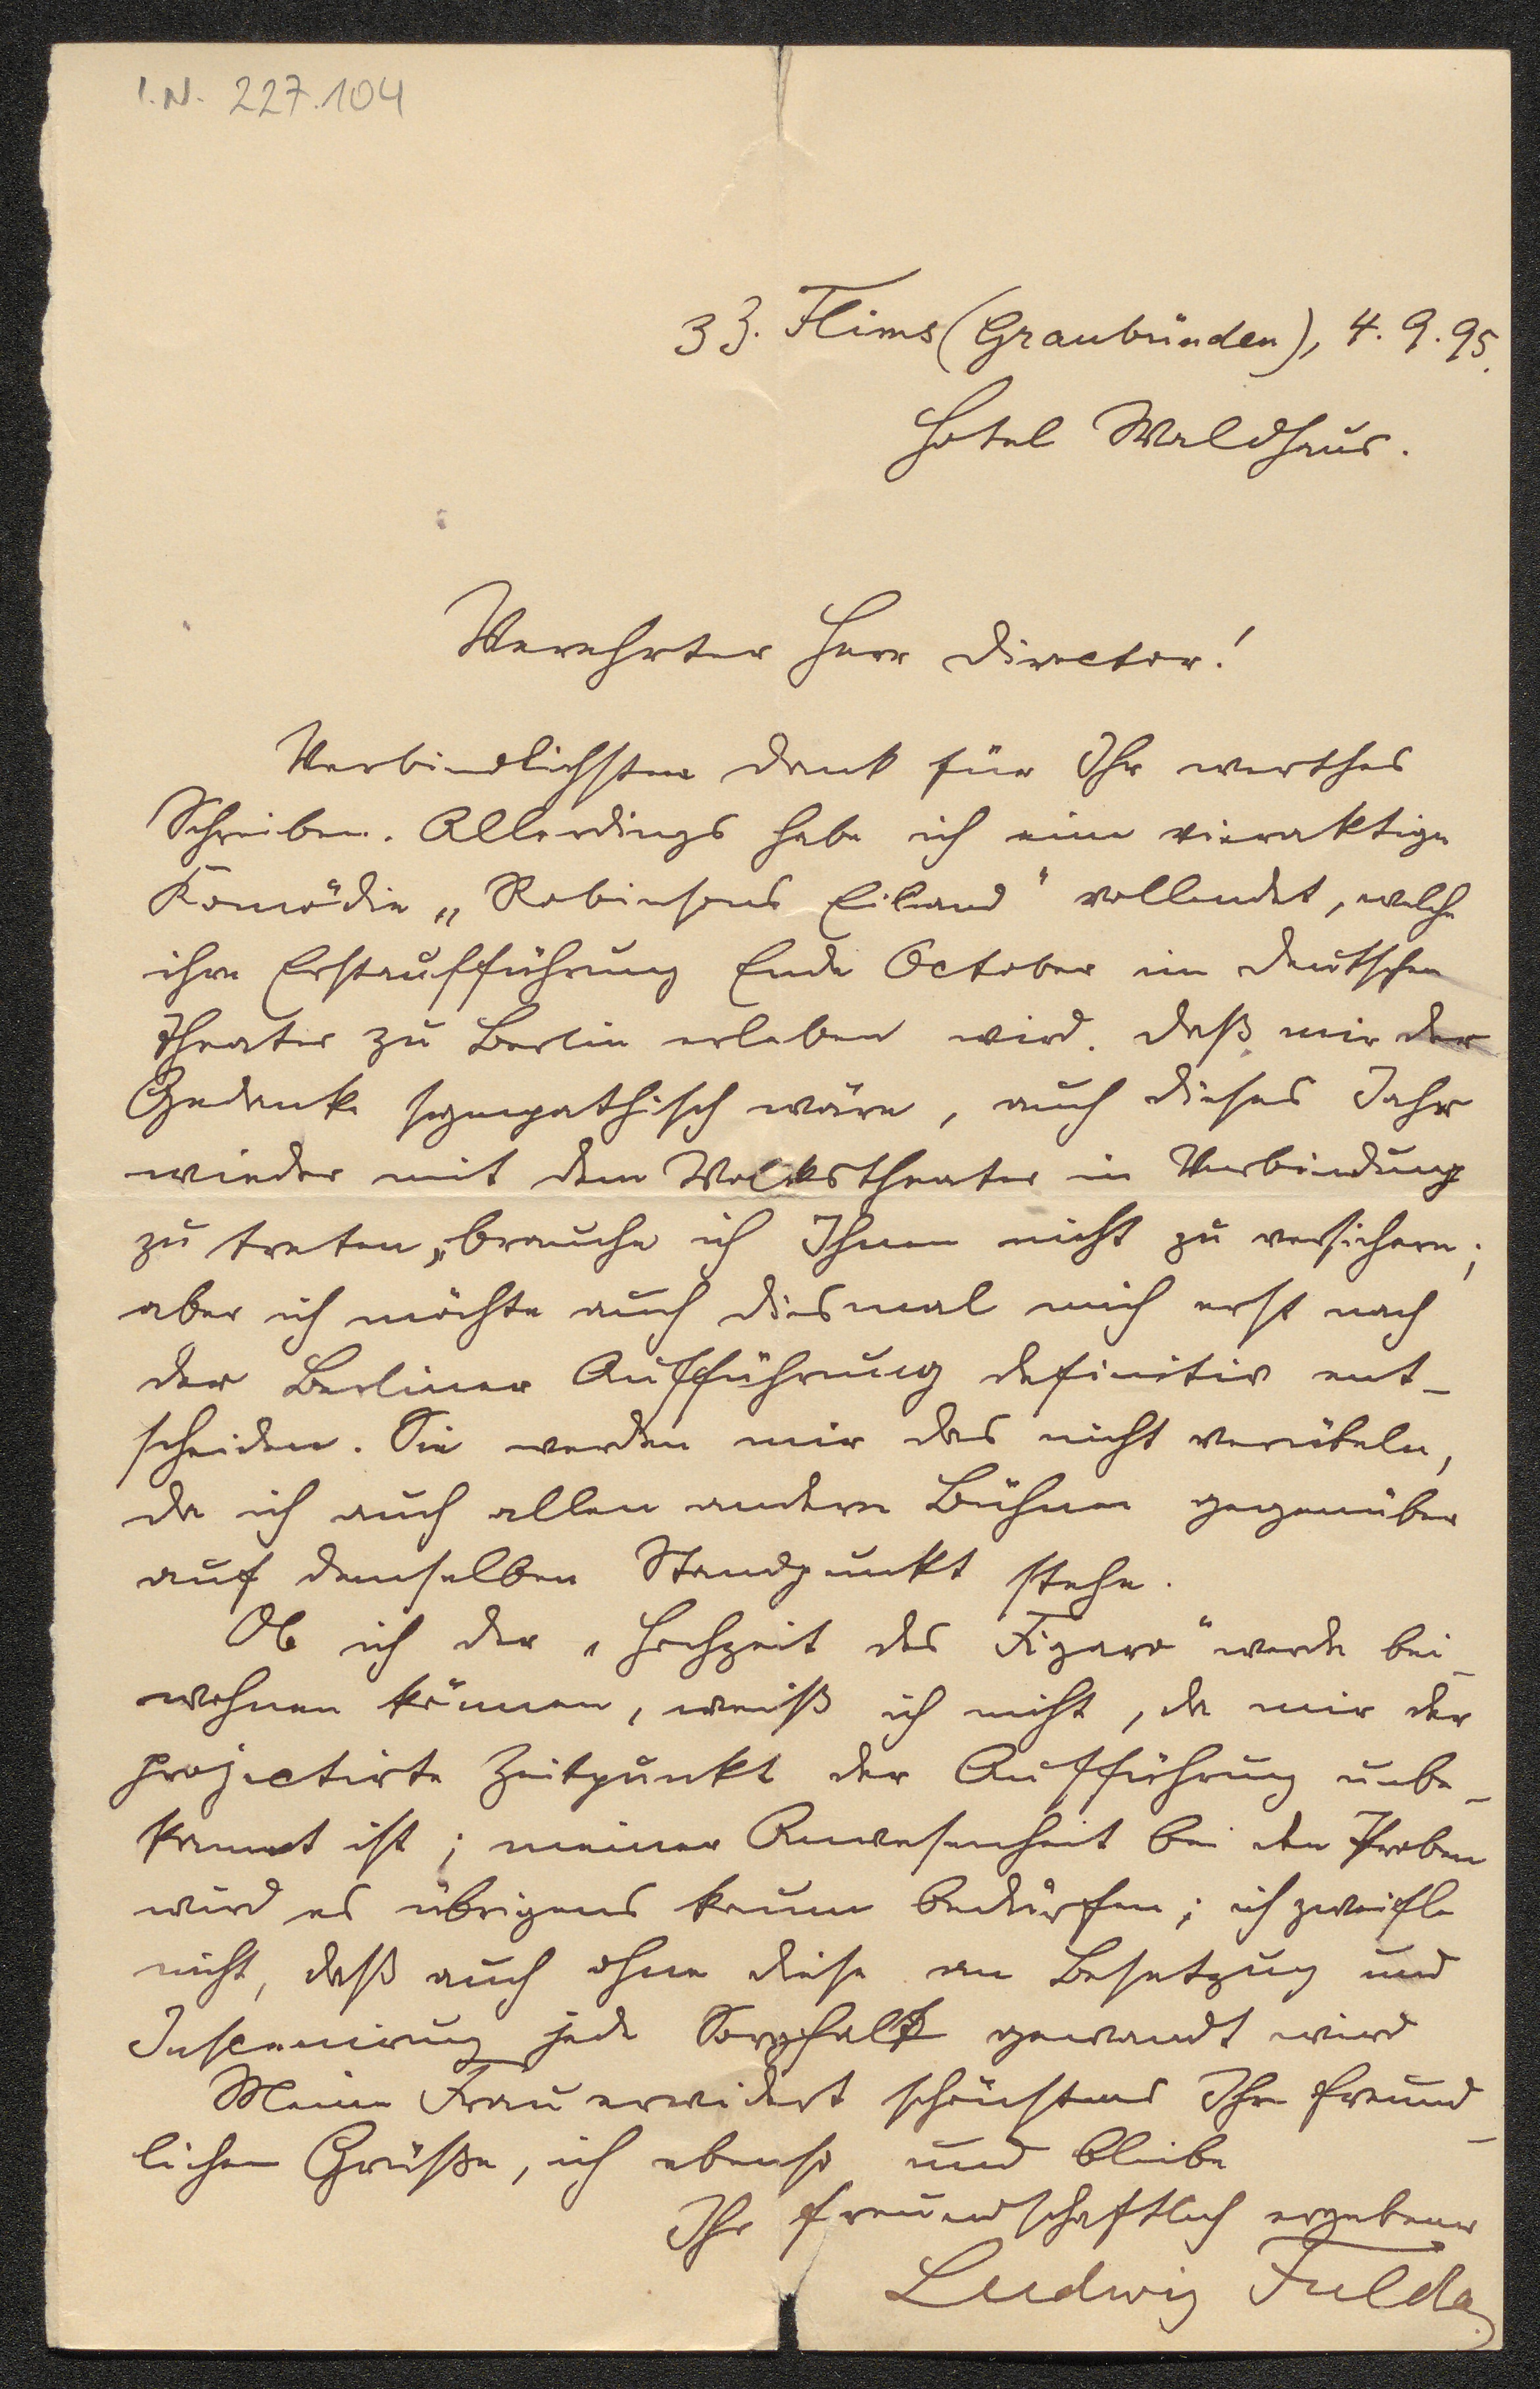 I.N. 227.104
z. Z. Flims (Graubünden), 4. 9. 95.
Hotel Waldhaus.
Verehrter Herr Director!
Verbindlichsten Dank für Ihr werthes
Schreiben. Allerdings habe ich eine vieraktige
Komödie „Robinsons Eiland" vollendet, welche
ihre Erstaufführung Ende October im Deutschen
Theater zu Berlin erleben wird. Daß mir der
Gedanke sympathisch wäre, auch dieses Jahr
wieder mit dem Volkstheater in Verbindung
zu treten, brauche ich Ihnen nicht zu versichern;
aber ich möchte auch diesmal mich erst nach
der Berliner Aufführung definitiv ent-
scheiden. Sie werden mir das nicht verübeln,
da ich auch allen andern Bühnen gegenüber
auf demselben Standpunkt stehe.
Ob ich der „Hochzeit des Figaro" werde bei-
wohnen können, weiß ich nicht, da mir der
projectirte Zeitpunkt der Aufführung unbe-
kannt ist; meiner Anwesenheit bei den Proben
wird es übrigens kaum bedürfen; ich zweifle
nicht, daß auch ohne diese an Besetzung und
Inscenirung jede Sorgfalt gewandt wird
Meine Frau erwidert schönstens Ihre freund-
lichen Grüße, ich ebenso und bleibe
Ihr freundschaftlich ergebener
Ludwig Fulda.